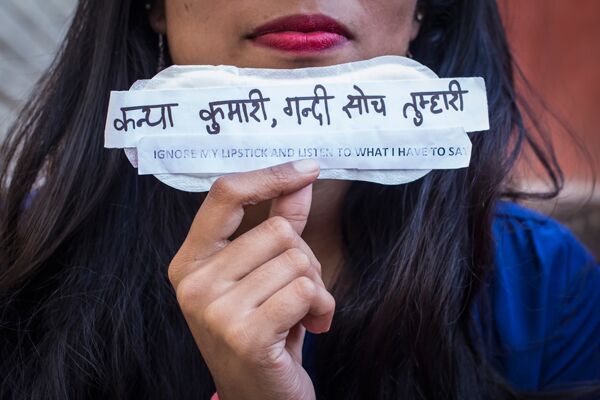 कन्या कुमारी, गन्दी सोच तुम्हारी
IGNORE MY LIPSTICK AND LISTEN TO WHAT I HAVE TO SAY